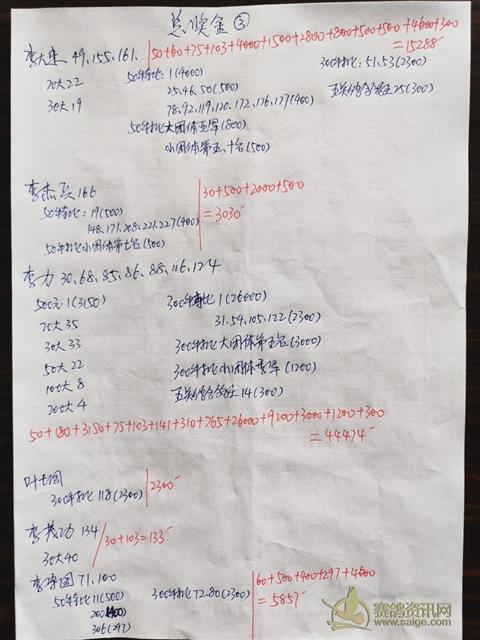 总奖金③
李大生 49、155、161. 50+60+75+103+4000+1500+2800+800+500+500+4600+300
=15288
20大22 50特比:1(4000) 300特比:51.53(2300)
30大19 25、46、50(500) 五关综合鸽王25(300)
78、92、119、120、172、176、177(400)
50特比大团体亚军(800)
小团体第五、十名(500)
李杰兵 166 30+500+2000+500
=3030
50特比:19(500)
148、171、208、221、227(400)
50特比小团体第七名(500)
李力 30、68、85、86、88、116、124
500元1(3150) 300特比1(26000)
20大35 31、54、105、122(2300)
30大33 300特比大团体第五名(3000)
50大22 300特比小团体季军(1200)
100大8 五关综合鸽王14(300)
200大4
50+180+3150+75+103+141+310+765+26000+9200+3000+1200+300
=44474
叶七囡
300特比118(2300) 2300
李茂功 134 30+103=133
30大40
李泽国 71、100 60+500+400+297+4600
=5857
50特比11(500) 300特比72.80(2300)
200(400)
306(297)
赛鸽资讯网
www.saige.com